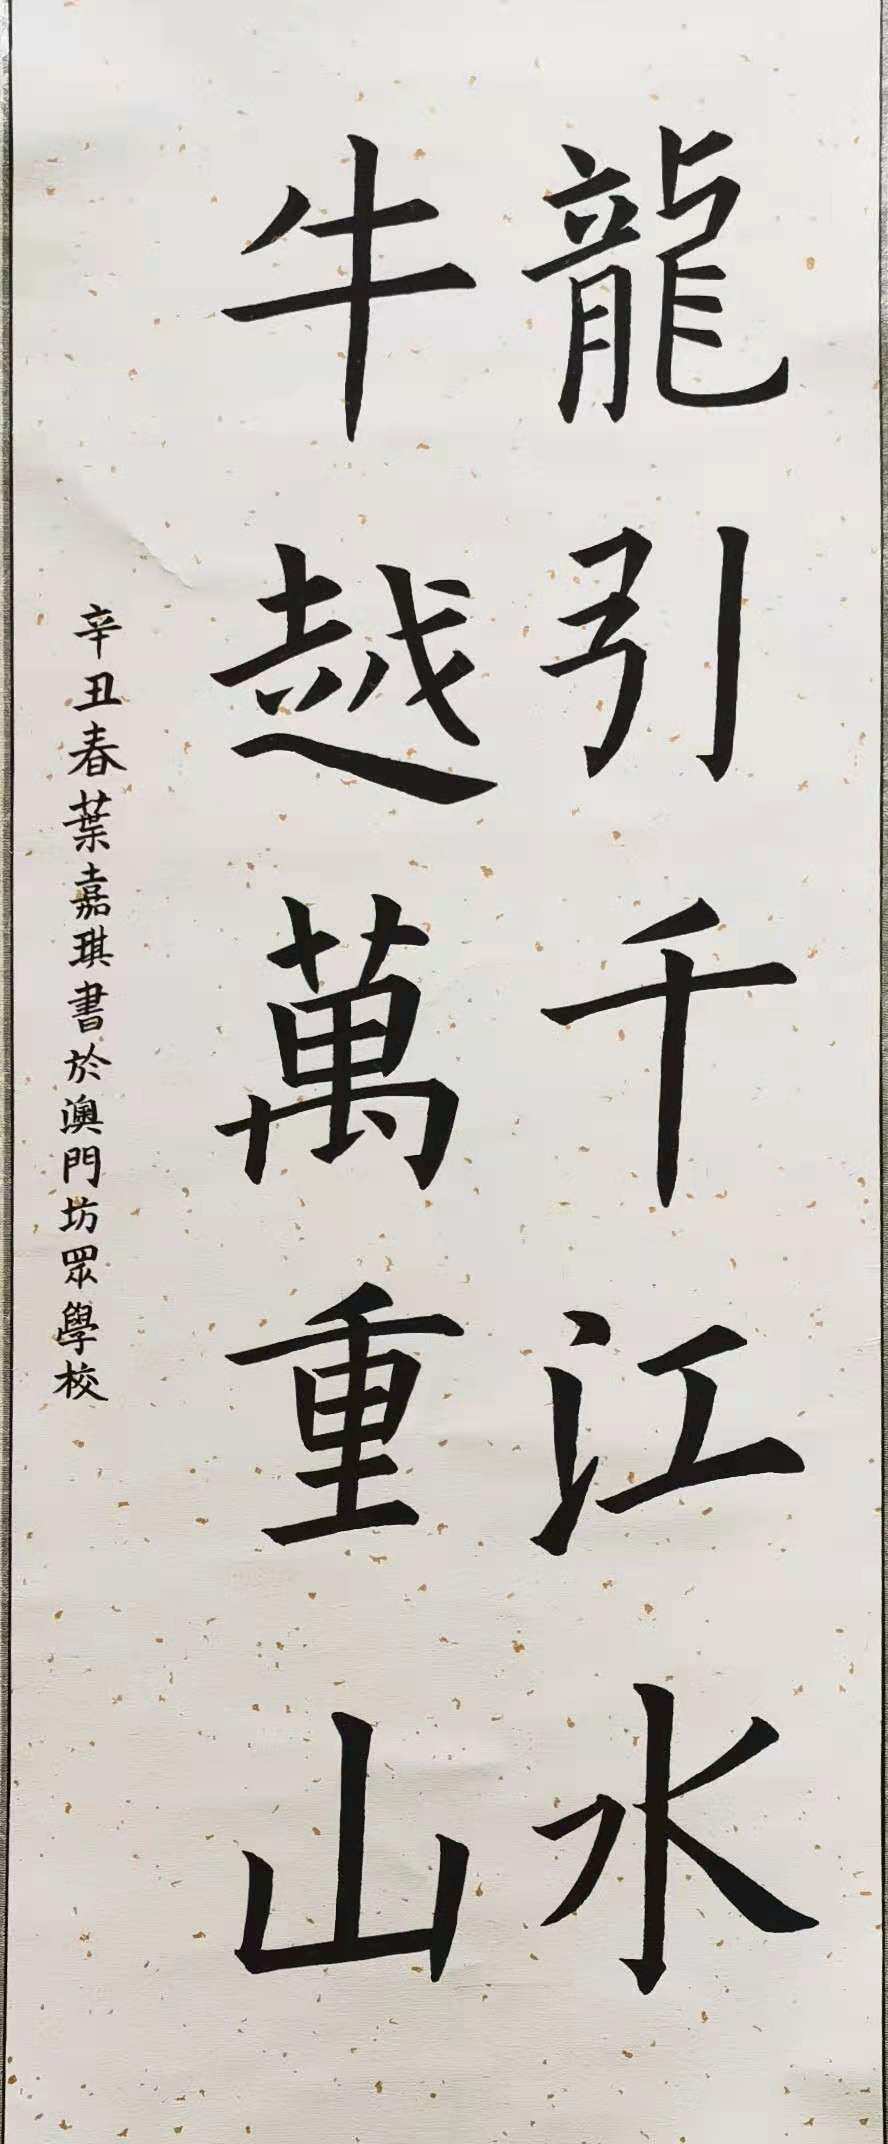 龍引千江水
牛越萬重山
辛丑春葉嘉琪書於澳門坊眾學校